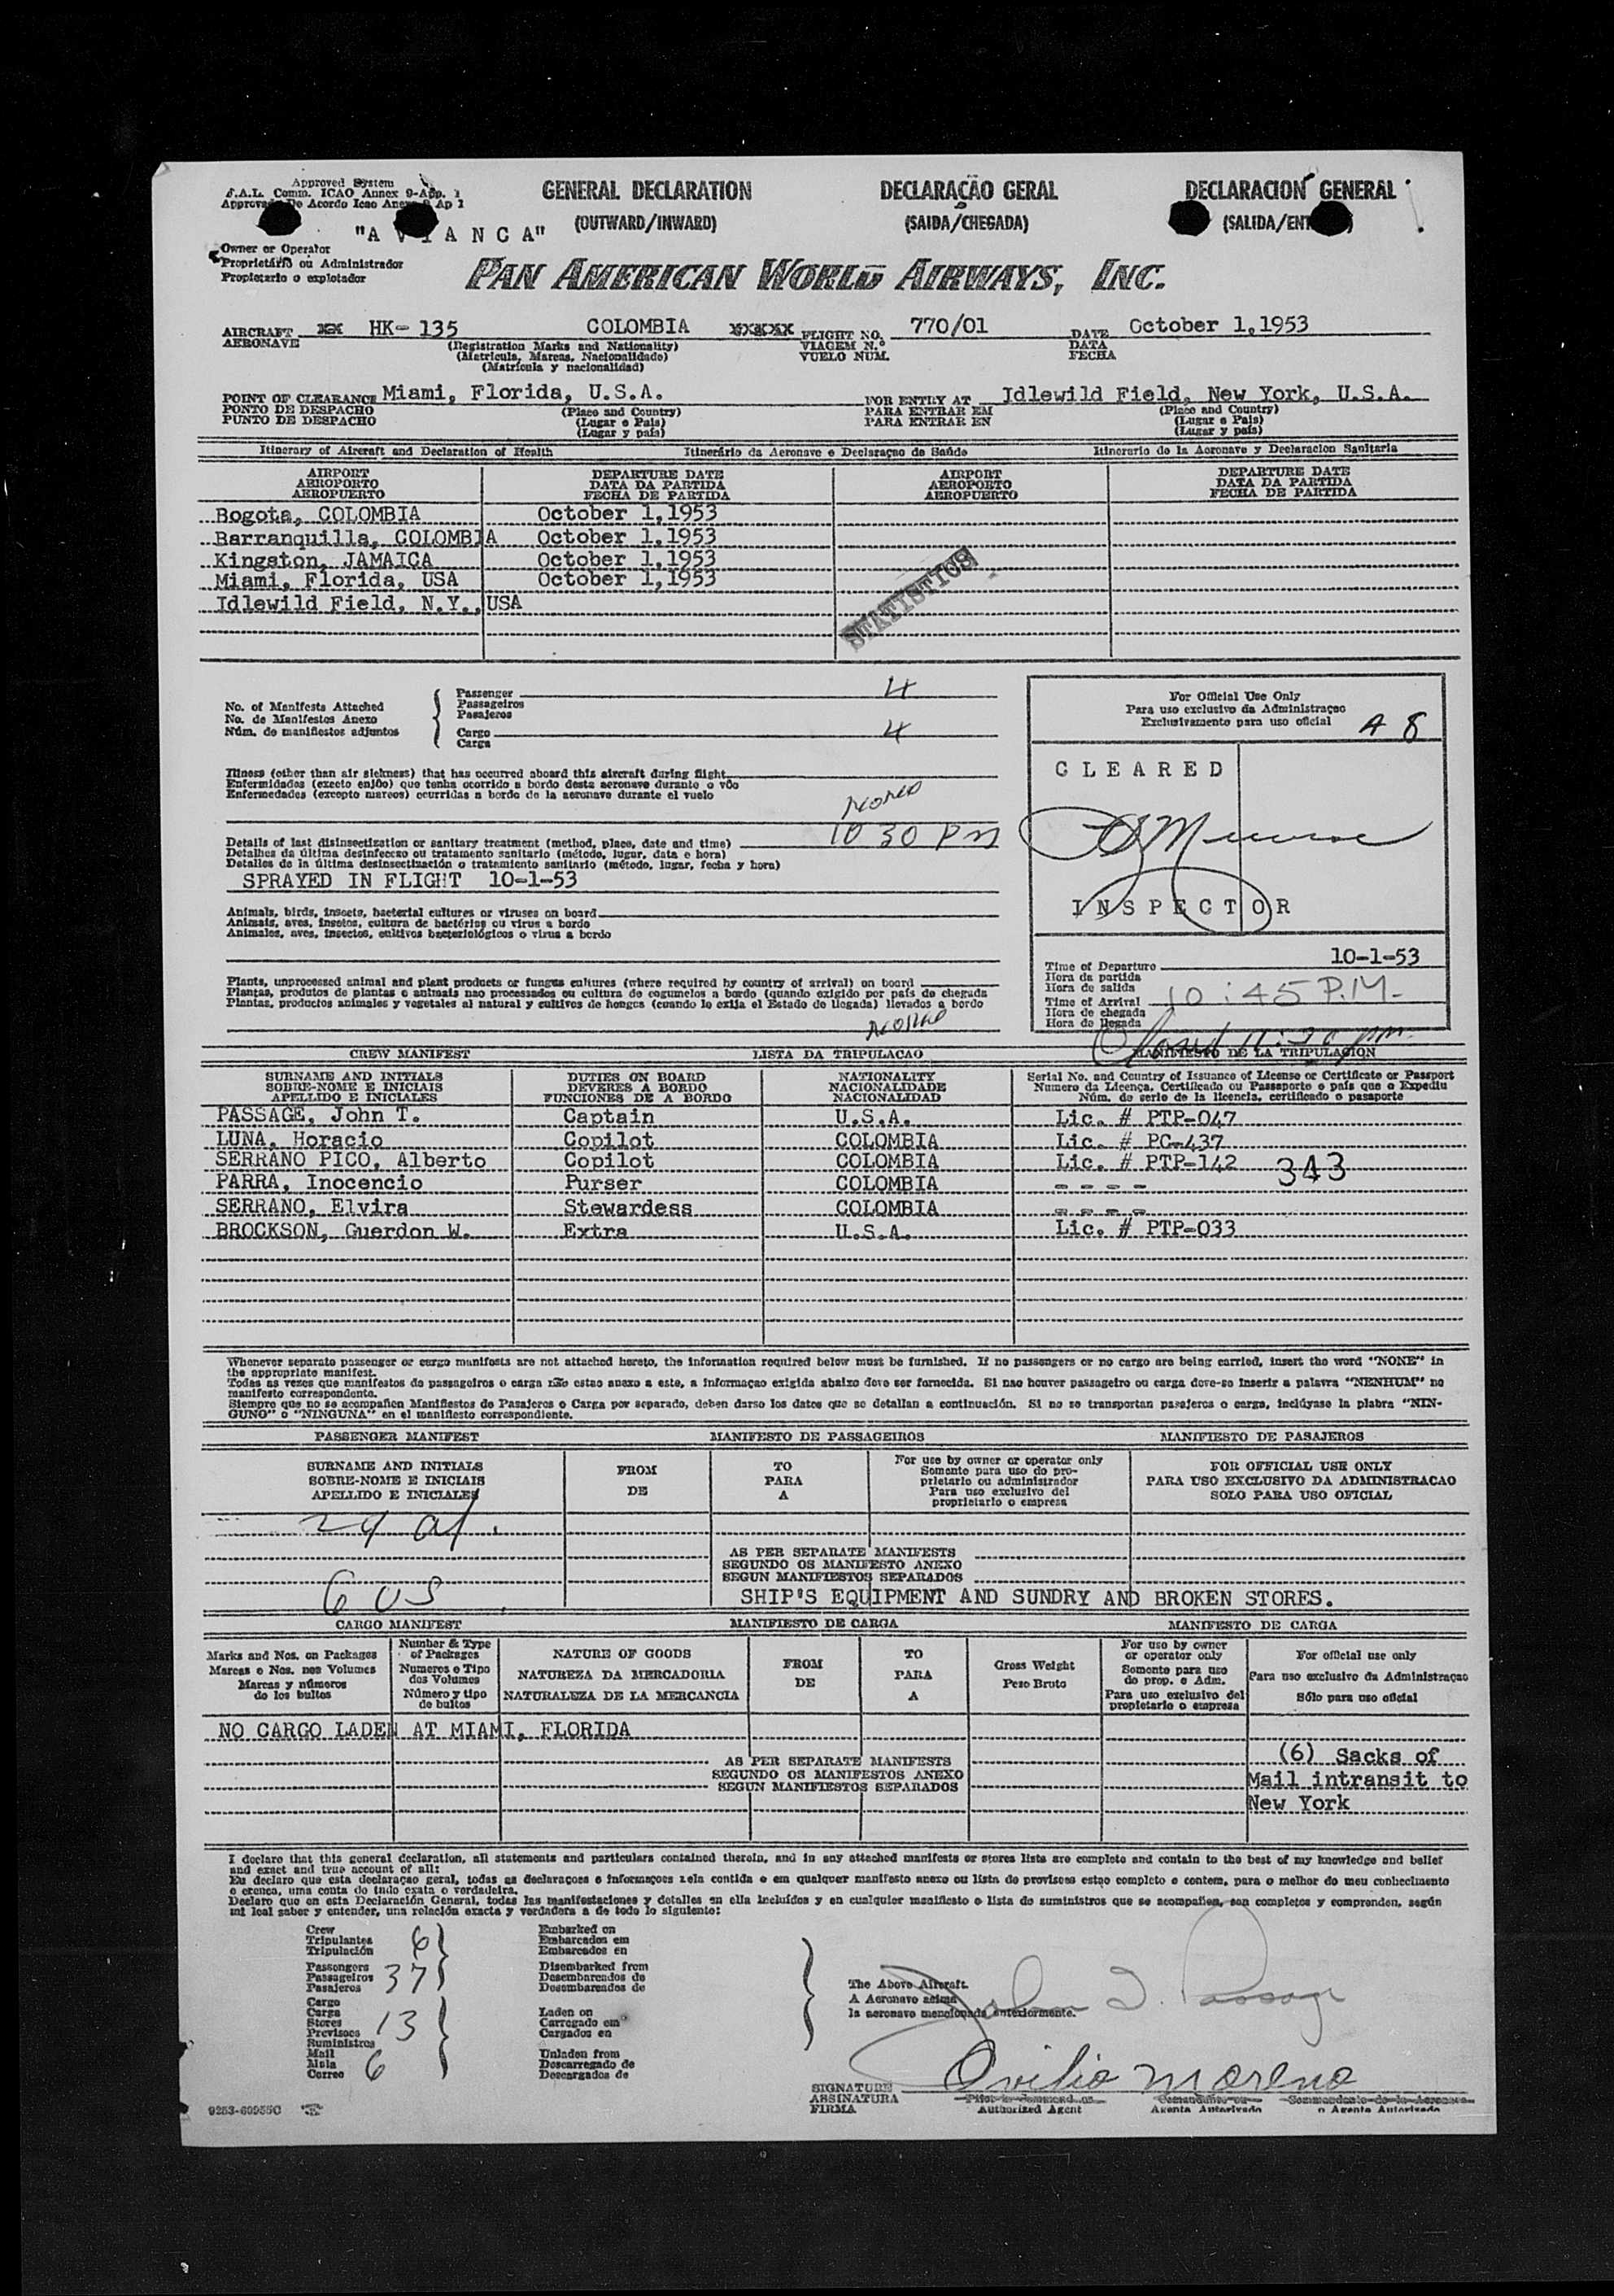 Approved System
F.A.L. Comm. ICAO Annex 9-App. 1
Approvado De Acordo Icao Anexo 9 Ap 1
GENERAL DECLARATION DECLARAÇÃO GERAL DECLARACION GENERAL
(OUTWARD/INWARD) (SAIDA/CHEGADA) (SALIDA/ENT
"A V I A N C A"
Owner or Operator
Proprietário ou Administrador
Propietario o explotador
PAN AMERICAN WORLD AIRWAYS, INC.
AIRCRAFT HK- 135 COLOMBIA FLIGHT NO. 770/01 DATE October 1,1953
AERONAVE (Registration Marks and Nationality) VIAGEM N.º DATA
(Matricula, Marcas, Nacionalidade) VUELO NUM. FECHA
(Matrícula y nacionalidad)
POINT OF CLEARANCE Miami, Florida, U.S.A. FOR ENTRY AT Idlewild Field, New York, U.S.A.
PONTO DE DESPACHO (Place and Country) PARA ENTRAR EM (Place and Country)
PUNTO DE DESPACHO (Lugar e Pais) PARA ENTRAR EN (Lugar e Pais)
(Lugar y país) (Lugar y país)
Itinerary of Aircraft and Declaration of Health Itinerário da Aeronave e Declaraçao de Saúde Itinerario de la Aeronave y Declaracion Sanitaria
AIRPORT DEPARTURE DATE AIRPORT DEPARTURE DATE
AEROPORTO DATA DA PARTIDA AEROPORTO DATA DA PARTIDA
AEROPUERTO FECHA DE PARTIDA AEROPUERTO FECHA DE PARTIDA
Bogota, COLOMBIA October 1,1953
Barranquilla, COLOMBIA October 1,1953
Kingston, JAMAICA October 1,1953
Miami, Florida, USA October 1,1953
Idlewild Field, N.Y., USA
STATISTICS
No. of Manifests Attached Passenger 4
No. de Manifestos Anexo Passageiros
Núm. de manifiestos adjuntos Pasajeros
Cargo 4
Carga
For Official Use Only
Para uso exclusivo da Administraçao
Exclusivamente para uso oficial A 8
CLEARED
INSPECTOR
Illness (other than air sickness) that has occurred aboard this aircraft during flight
Enfermidades (exceto enjôo) que tenha ocorrido a bordo desta aeronave durante o vôo
Enfermedades (excepto mareos) ocurridas a bordo de la aeronave durante el vuelo
10 30 PM
Details of last disinsectization or sanitary treatment (method, place, date and time)
Detalhes da última desinfeccao ou tratamento sanitario (método, lugar, data e hora)
Detalles de la última desinsectización o tratamiento sanitario (método, lugar, fecha y hora)
SPRAYED IN FLIGHT 10-1-53
Animals, birds, insects, bacterial cultures or viruses on board
Animais, aves, insetos, cultura de bactérias ou virus a bordo
Animales, aves, insectos, cultivos bacteriológicos o virus a bordo
Plants, unprocessed animal and plant products or fungus cultures (where required by country of arrival) on board
Plantas, produtos de plantas e animais nao processados ou cultura de cogumelos a bordo (quando exigido por pais de chegada
Plantas, productos animales y vegetales al natural y cultivos de hongos (cuando lo exija el Estado de llegada) llevados a bordo
10-1-53
Time of Departure
Hora da partida
Hora de salida
Time of Arrival 10:45 P.M.
Hora de chegada
Hora de llegada
Closed 11:30 pm
CREW MANIFEST LISTA DA TRIPULACAO MANIFIESTO DE LA TRIPULACION
SURNAME AND INITIALS DUTIES ON BOARD NATIONALITY Serial No. and Country of Issuance of License or Certificate or Passport
SOBRE-NOME E INICIAIS DEVERES A BORDO NACIONALIDADE Numero da Licença, Certificado ou Passaporte e país que o Expediu
APELLIDO E INICIALES FUNCIONES DE A BORDO NACIONALIDAD Núm. de serie de la licencia, certificado o pasaporte
PASSAGE, John T. Captain U.S.A. Lic. # PTP-047
LUNA, Horacio Copilot COLOMBIA Lic. # PC-437
SERRANO PICO, Alberto Copilot COLOMBIA Lic. # PTP-142 343
PARRA, Inocencio Purser COLOMBIA - - - -
SERRANO, Elvira Stewardess COLOMBIA - - - -
BROCKSON, Guerdon W. Extra U.S.A. Lic. # PTP-033
Whenever separate passenger or cargo manifests are not attached hereto, the information required below must be furnished. If no passengers or no cargo are being carried, insert the word "NONE" in
the appropriate manifest.
Todas as vezes que manifestos de passageiros e carga não estao anexo a este, a informaçao exigida abaixo deve ser fornecida. Si nao houver passageiro ou carga deve-se inserir a palavra "NENHUM" no
manifesto correspondente.
Siempre que no se acompañen Manifiestos de Pasajeros o Carga por separado, deben darse los datos que se detallan a continuación. Si no se transportan pasajeros o carga, inclúyase la plabra "NIN-
GUNO" o "NINGUNA" en el manifiesto correspondiente.
PASSENGER MANIFEST MANIFESTO DE PASSAGEIROS MANIFIESTO DE PASAJEROS
SURNAME AND INITIALS FROM TO For use by owner or operator only FOR OFFICIAL USE ONLY
SOBRE-NOME E INICIAIS DE PARA Somente para uso do pro-
prietario ou administrador PARA USO EXCLUSIVO DA ADMINISTRACAO
APELLIDO E INICIALES A Para uso exclusivo del
propietario o empresa SOLO PARA USO OFICIAL
AS PER SEPARATE MANIFESTS
SEGUNDO OS MANIFESTO ANEXO
SEGUN MANIFIESTOS SEPARADOS
6 US
SHIP'S EQUIPMENT AND SUNDRY AND BROKEN STORES.
CARGO MANIFEST MANIFIESTO DE CARGA MANIFESTO DE CARGA
Marks and Nos. on Packages Number & Type of Packages NATURE OF GOODS FROM TO Gross Weight For use by owner or operator only For official use only
Marcas e Nos. nos Volumes Numeros e Tipo dos Volumes NATUREZA DA MERCADORIA DE PARA Peso Bruto Somente para uso do prop. e Adm. Para uso exclusivo da Administraçao
Marcas y números de los bultos Número y tipo de bultos NATURALEZA DE LA MERCANCIA A Para uso exclusivo del propietario o empresa Sólo para uso oficial
NO CARGO LADEN AT MIAMI, FLORIDA
AS PER SEPARATE MANIFESTS
SEGUNDO OS MANIFESTOS ANEXO
SEGUN MANIFIESTOS SEPARADOS
(6) Sacks of
Mail intransit to
New York
I declare that this general declaration, all statements and particulars contained therein, and in any attached manifests or stores lists are complete and contain to the best of my knowledge and belief
and exact and true account of all:
Eu declaro que esta declaraçao geral, todas as declaraçoes e informaçoes nela contida e em qualquer manifesto anexo ou lista de provisoes estao completo e contem, para o melhor do meu conhecimento
e crenca, uma conta do tudo exata e verdadeira.
Declaro que en esta Declaración General, todas las manifestaciones y detalles en ella incluídos y en cualquier manifiesto o lista de suministros que se acompañen, son completos y comprenden, según
mi leal saber y entender, una relación exacta y verdadera a de todo lo siguiente:
Crew Embarked on
Tripulantes 6 Embarcados em
Tripulación Embarcados en
Passengers Disembarked from
Passageiros 37 Desembarcados de
Pasajeros Desembarcados de
Cargo
Carga Laden on
Stores 13 Carregado em
Provisoes Cargados en
Suministros
Mail Unladen from
Mala 6 Descarregado de
Correo Descargados de
The Above Aircraft.
A Aeronave acima
la aeronave mencionada anteriormente.
John T. Passage
Ovilio Moreno
SIGNATURE
ASSINATURA
FIRMA
Pilot in Command or Comandante ou Commandante de la Aeronave
Authorized Agent Agente Autorizado o Agente Autorizado
9253-60955C